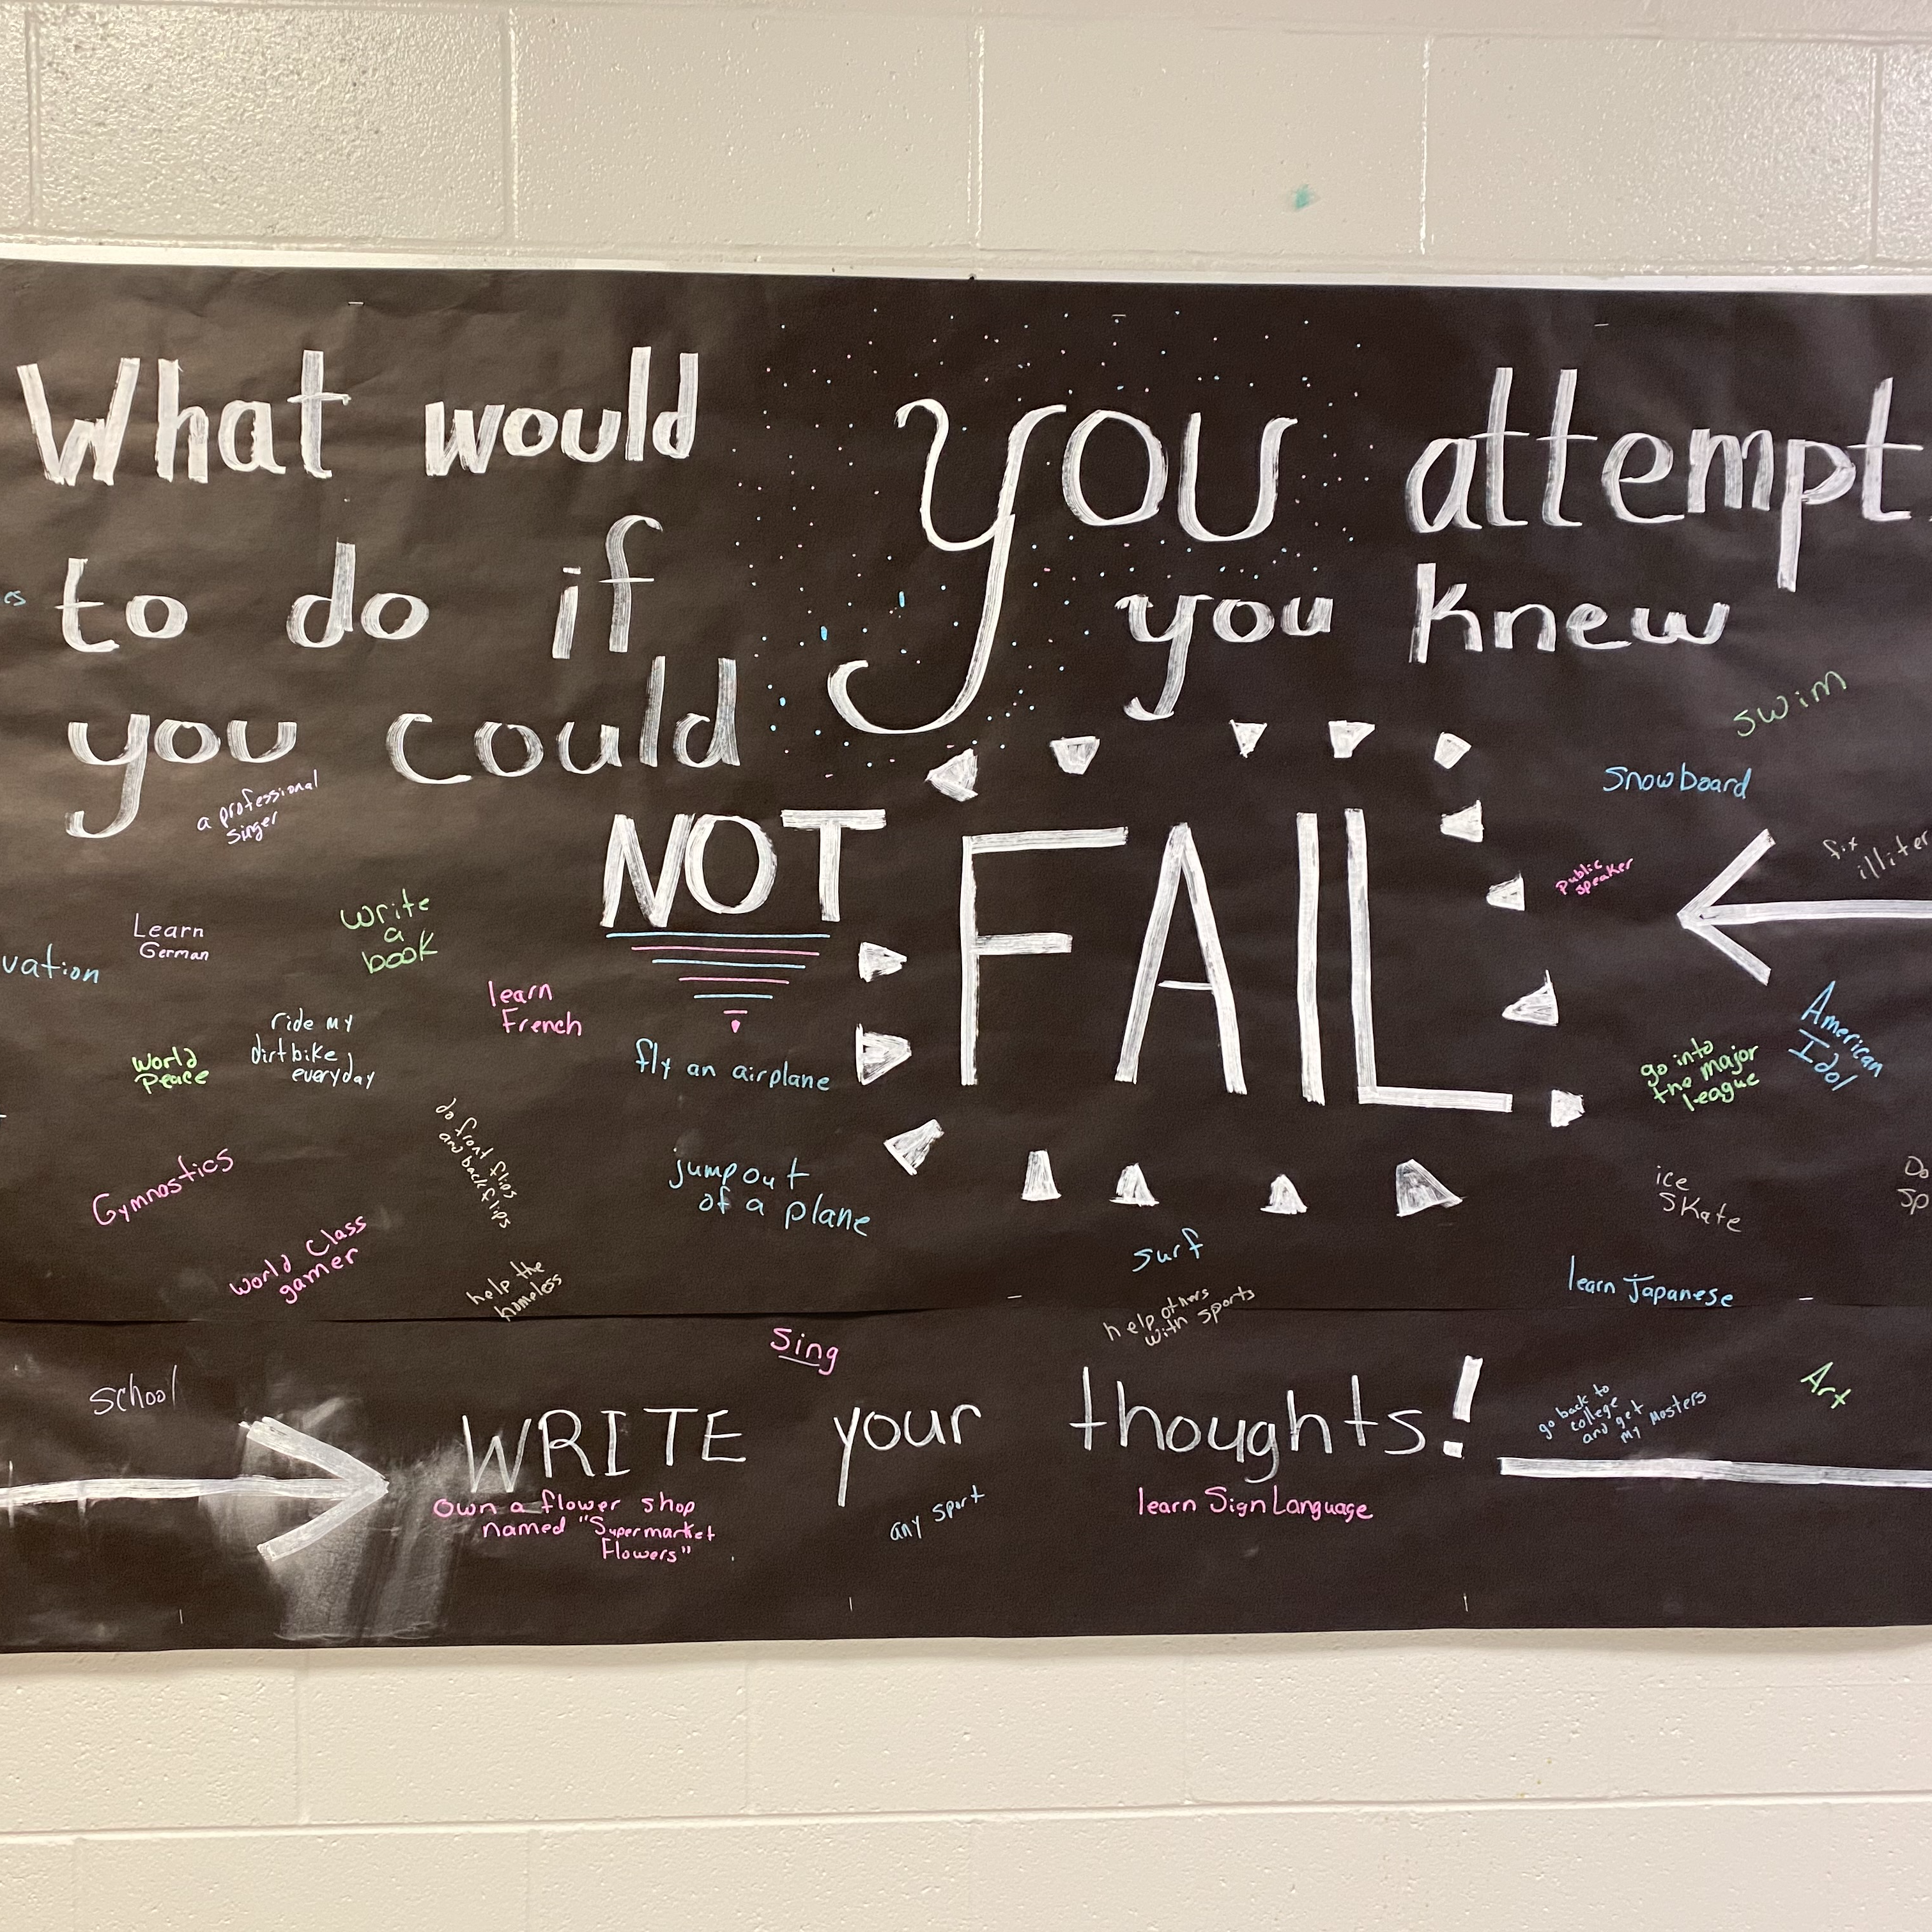 What would you attempt
to do if you knew
you could
NOT FAIL
a professional
singer
swim
Snowboard
Public
speaker
fix
Learn
German
write
a
book
vation
learn
French
ride my
dirtbike
everyday
World
Peace
fly an airplane
go into
the major
league
American
Idol
do front flips
and back flips
Gymnostics
jump out
of a plane
ice
SKate
World Class
gamer
help the
homeless
surf
learn Japanese
help others
with sports
Sing
school
Art
go back to
college
and get
my Masters
WRITE your thoughts!
Own a flower shop
named "Supermarket
Flowers"
any sport
learn Sign Language